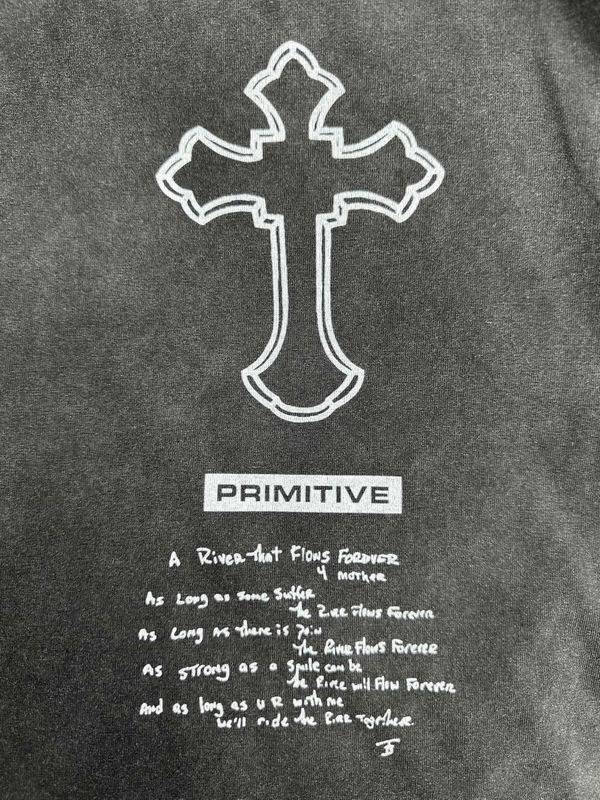 PRIMITIVE
A River that Flows Forever
4 mother
As Long as some Suffer
the River Flows Forever
As Long As there is pain
the River Flows Forever
As strong as a Smile can be
the River will Flow Forever
And as long as U R with me
we'll ride the River Together